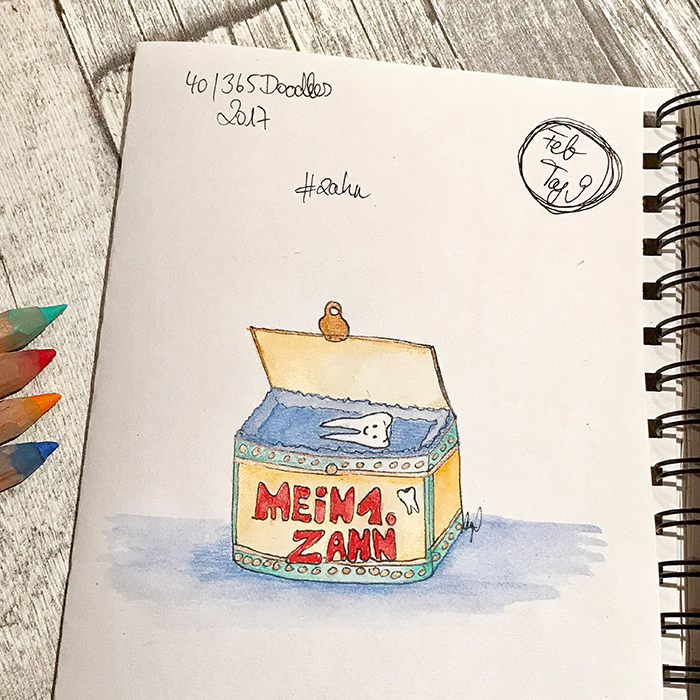 40/365 Doodles
2017
Feb
Tag 9
#zahn
MEIN 1.
ZAHN